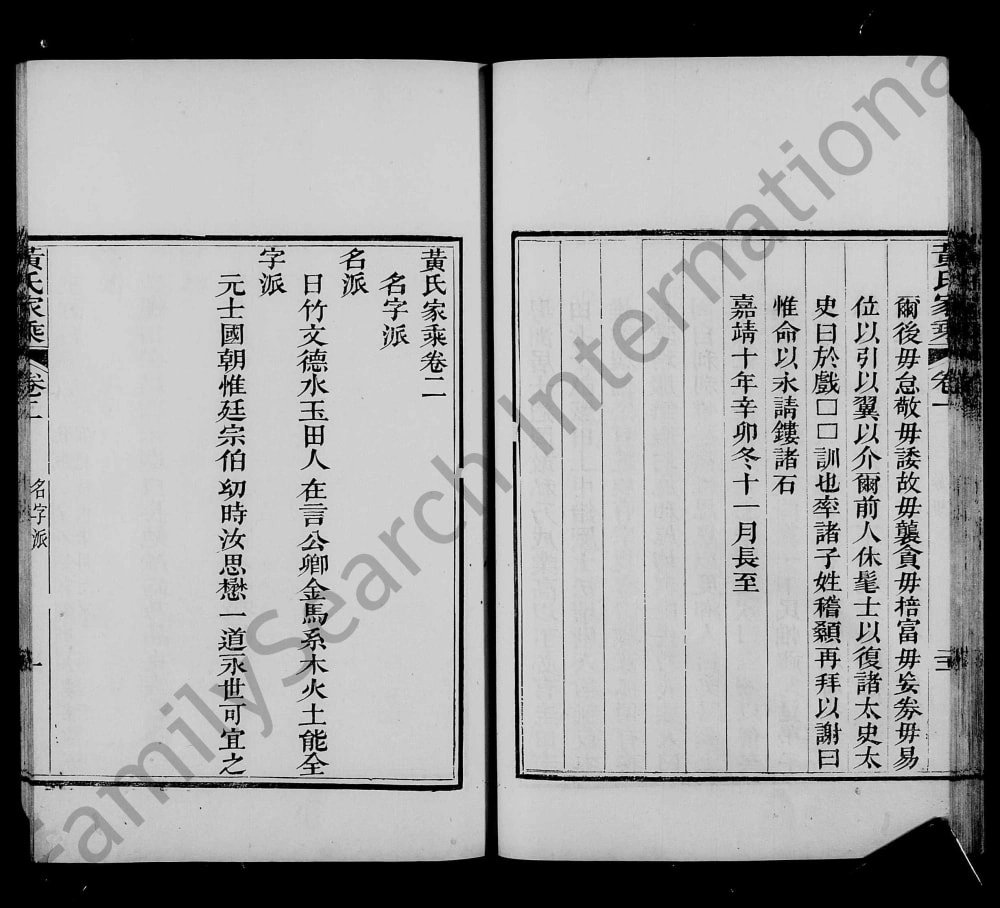 黃氏家乘 卷一 三
爾後毋怠敬毋諉故毋襲貪毋棓富毋妄劵毋易
位以引以翼以介爾前人休髦士以復諸太史太
史曰於戲□□訓也率諸子姓稽顙再拜以謝曰
惟命以永請鏤諸石
嘉靖十年辛卯冬十一月長至
黃氏家乘卷二
名字派
名派
日竹文德水玉田人在言公卿金馬系木火土能全
字派
元士國朝惟廷宗伯𠛴時汝思懋一道永世可宜之
黃氏家乘 卷二 名字派 一
FamilySearch International